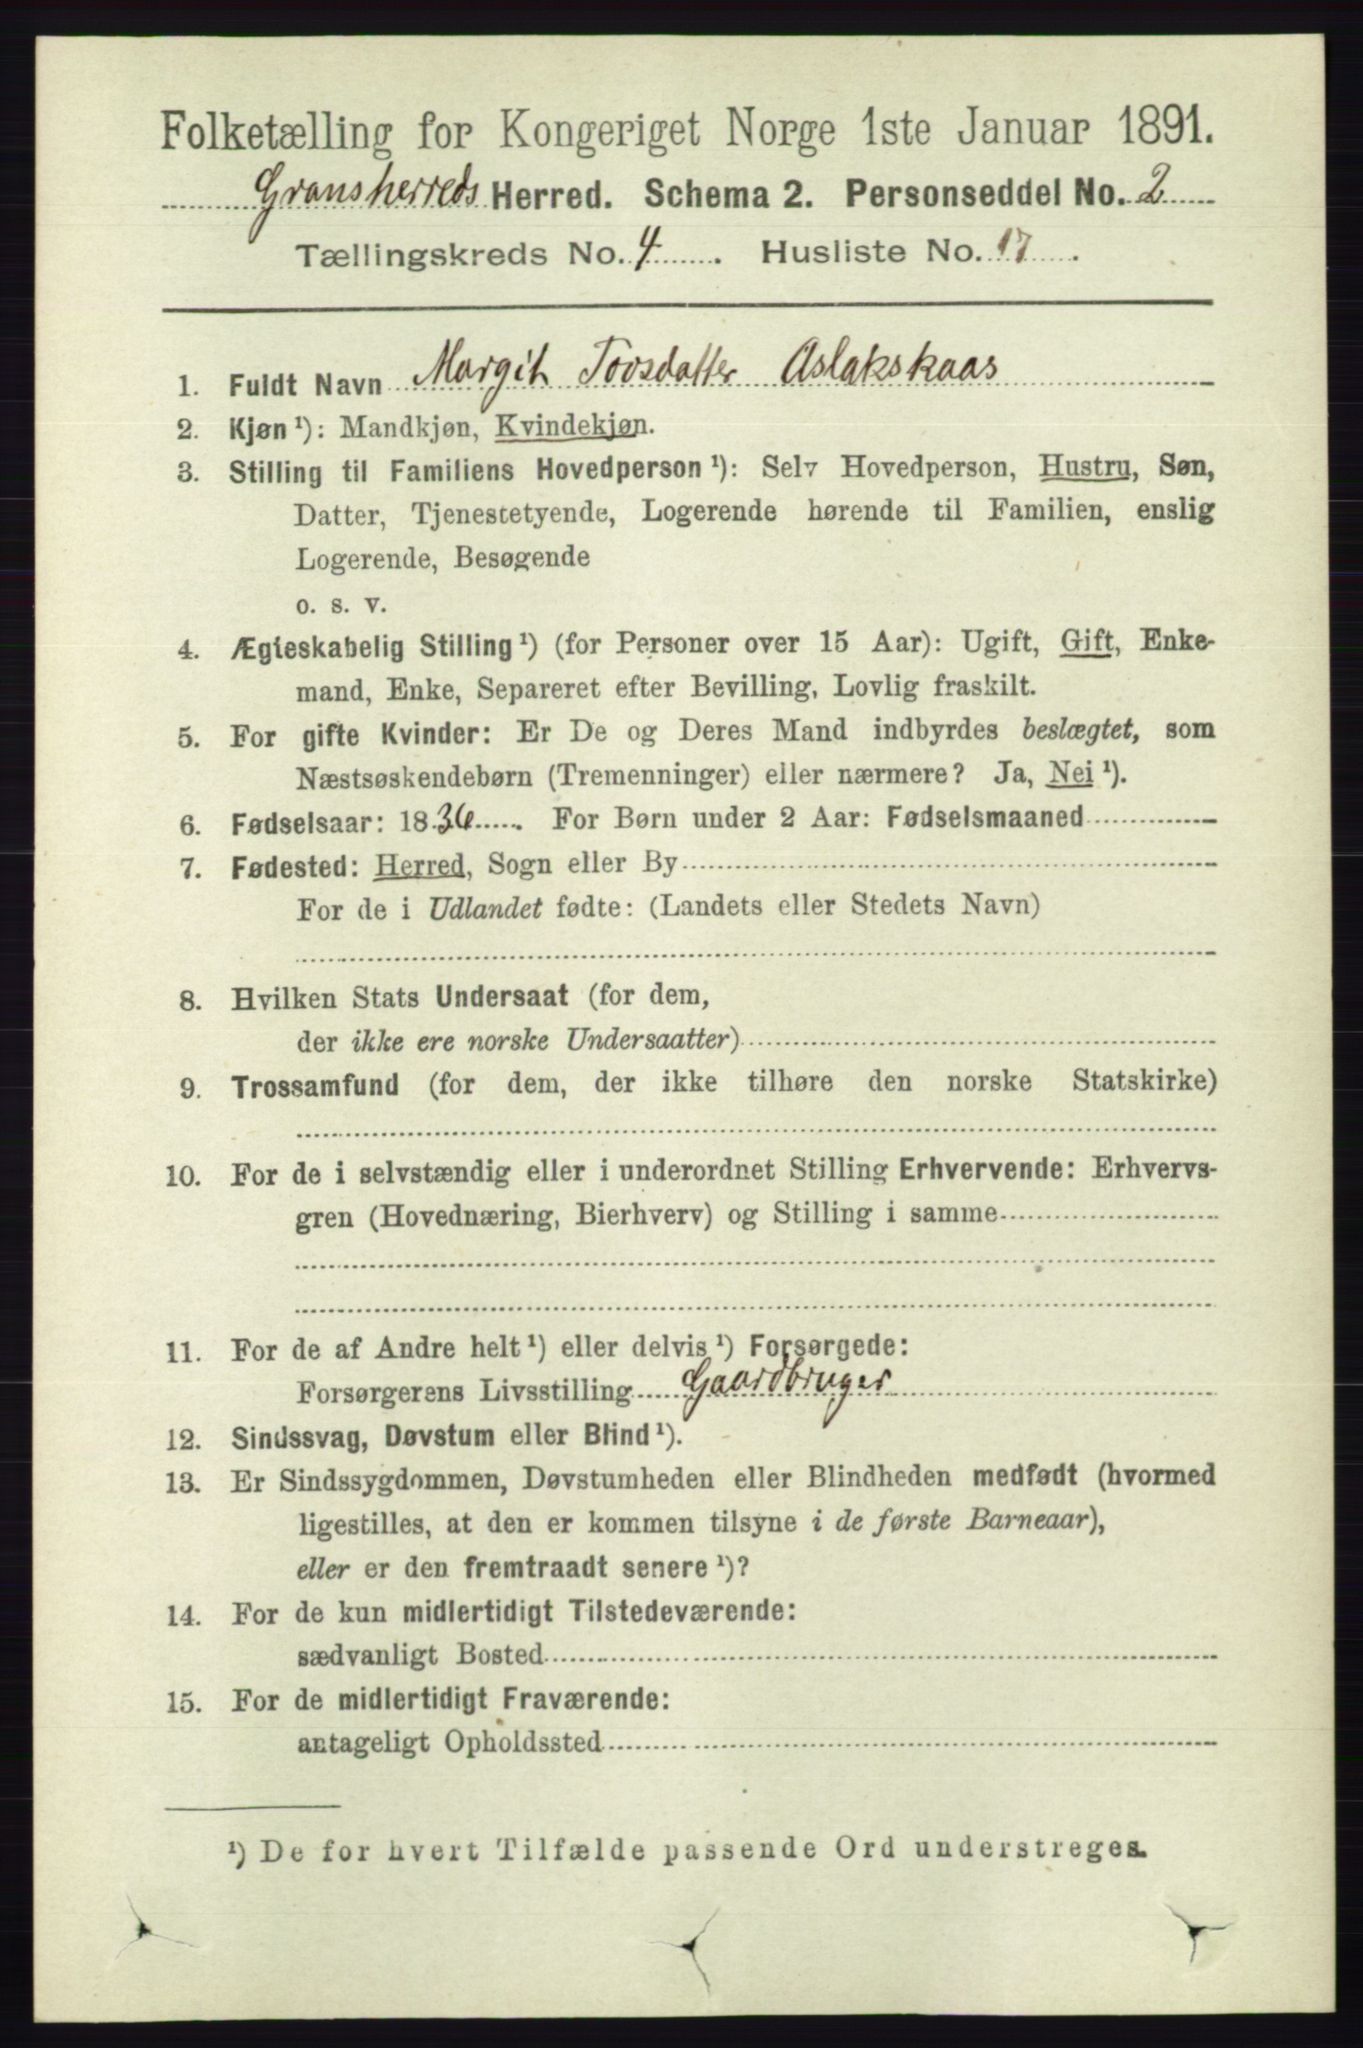 Folketælling for Kongeriget Norge 1ste Januar 1891.
Gransherreds Herred. Schema 2. Personseddel No. 2
Tællingskreds No. 4. Husliste No. 17.
1. Fuldt Navn Margit Tovsdatter Aslakskaas
2. Kjøn ¹): Mandkjøn, Kvindekjøn.
3. Stilling til Familiens Hovedperson ¹): Selv Hovedperson, Hustru, Søn,
Datter, Tjenestetyende, Logerende hørende til Familien, enslig
Logerende, Besøgende
o. s. v.
4. Ægteskabelig Stilling ¹) (for Personer over 15 Aar): Ugift, Gift, Enke-
mand, Enke, Separeret efter Bevilling, Lovlig fraskilt.
5. For gifte Kvinder: Er De og Deres Mand indbyrdes beslægtet, som
Næstsøskendebørn (Tremenninger) eller nærmere? Ja, Nei ¹).
6. Fødselsaar: 1836. For Børn under 2 Aar: Fødselsmaaned
7. Fødested: Herred, Sogn eller By
For de i Udlandet fødte: (Landets eller Stedets Navn)
8. Hvilken Stats Undersaat (for dem,
der ikke ere norske Undersaatter)
9. Trossamfund (for dem, der ikke tilhøre den norske Statskirke)
10. For de i selvstændig eller i underordnet Stilling Erhvervende: Erhvervs-
gren (Hovednæring, Bierhverv) og Stilling i samme
11. For de af Andre helt ¹) eller delvis ¹) Forsørgede:
Forsørgerens Livsstilling Gaardbruger
12. Sindssvag, Døvstum eller Blind ¹).
13. Er Sindssygdommen, Døvstumheden eller Blindheden medfødt (hvormed
ligestilles, at den er kommen tilsyne i de første Barneaar),
eller er den fremtraadt senere ¹)?
14. For de kun midlertidigt Tilstedeværende:
sædvanligt Bosted
15. For de midlertidigt Fraværende:
antageligt Opholdssted
¹) De for hvert Tilfælde passende Ord understreges.